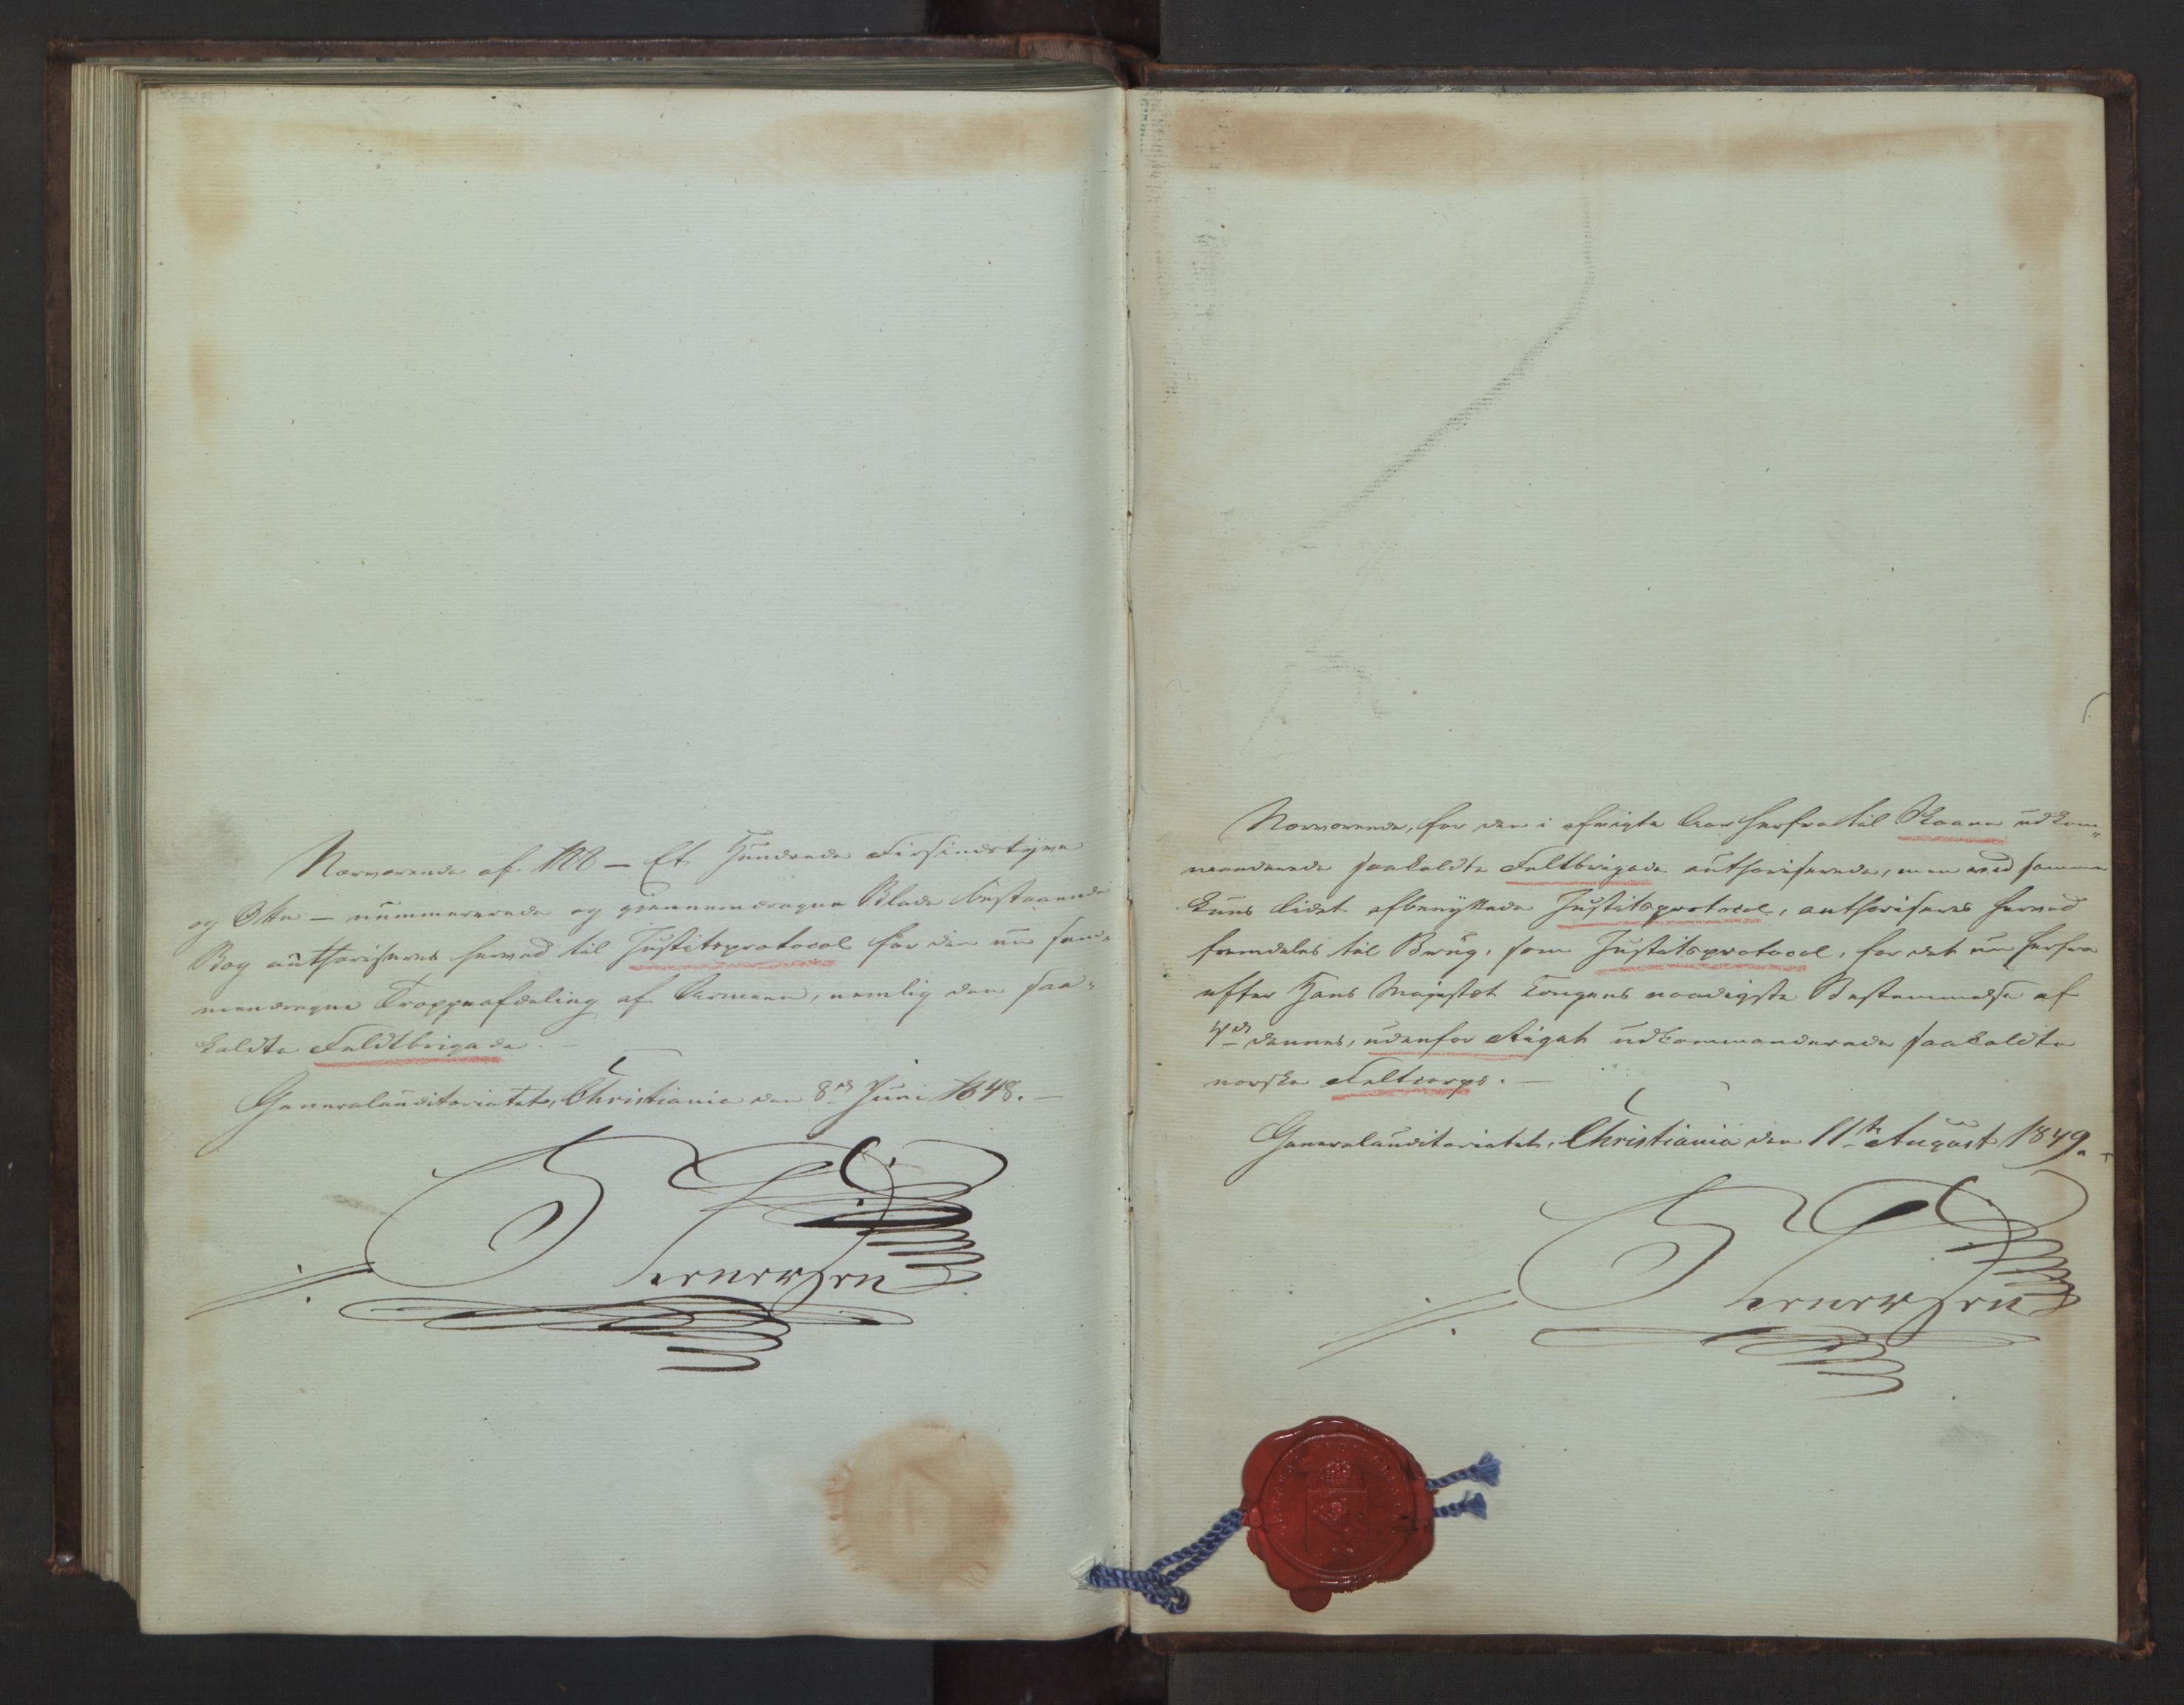 Nærværende af 188 – Et Hundrede Firsindstyve
og Otte – nummererede og giennemdragne Blade bestaaende
Bog authoriseres herved til Justitsprotocol for den nu sam-
mendragne Troppeafdeling af Armeen, nemlig den saa-
kaldte Feldtbrigade. –
Generalauditoriatet, Christiania den 8de Juni 1848. –
Nærværende, for den i afvigte Aar herfra til Skaane udkom-
manderede saakaldte Feltbrigade authoriserede, men ved samme
kuns lidet afbenyttede Justitsprotocol, authoriseres herved
fremdeles til Brug, som Justitsprotocol, for det nu herfra
efter Hans Majestæt Kongens naadigste Bestemmelse af
4de dennes, udenfor Riget udkommanderede saakaldte
norske Feltcorps. –
Generalauditoriatet, Christiania den 11te August 1849. –